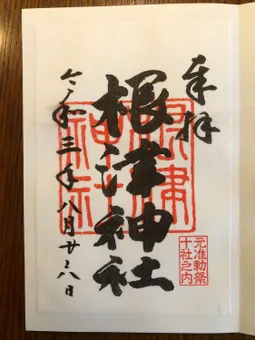 奉拝
根津神社
令和三年八月廿八日
根津
神社
元准勅祭
十社之内